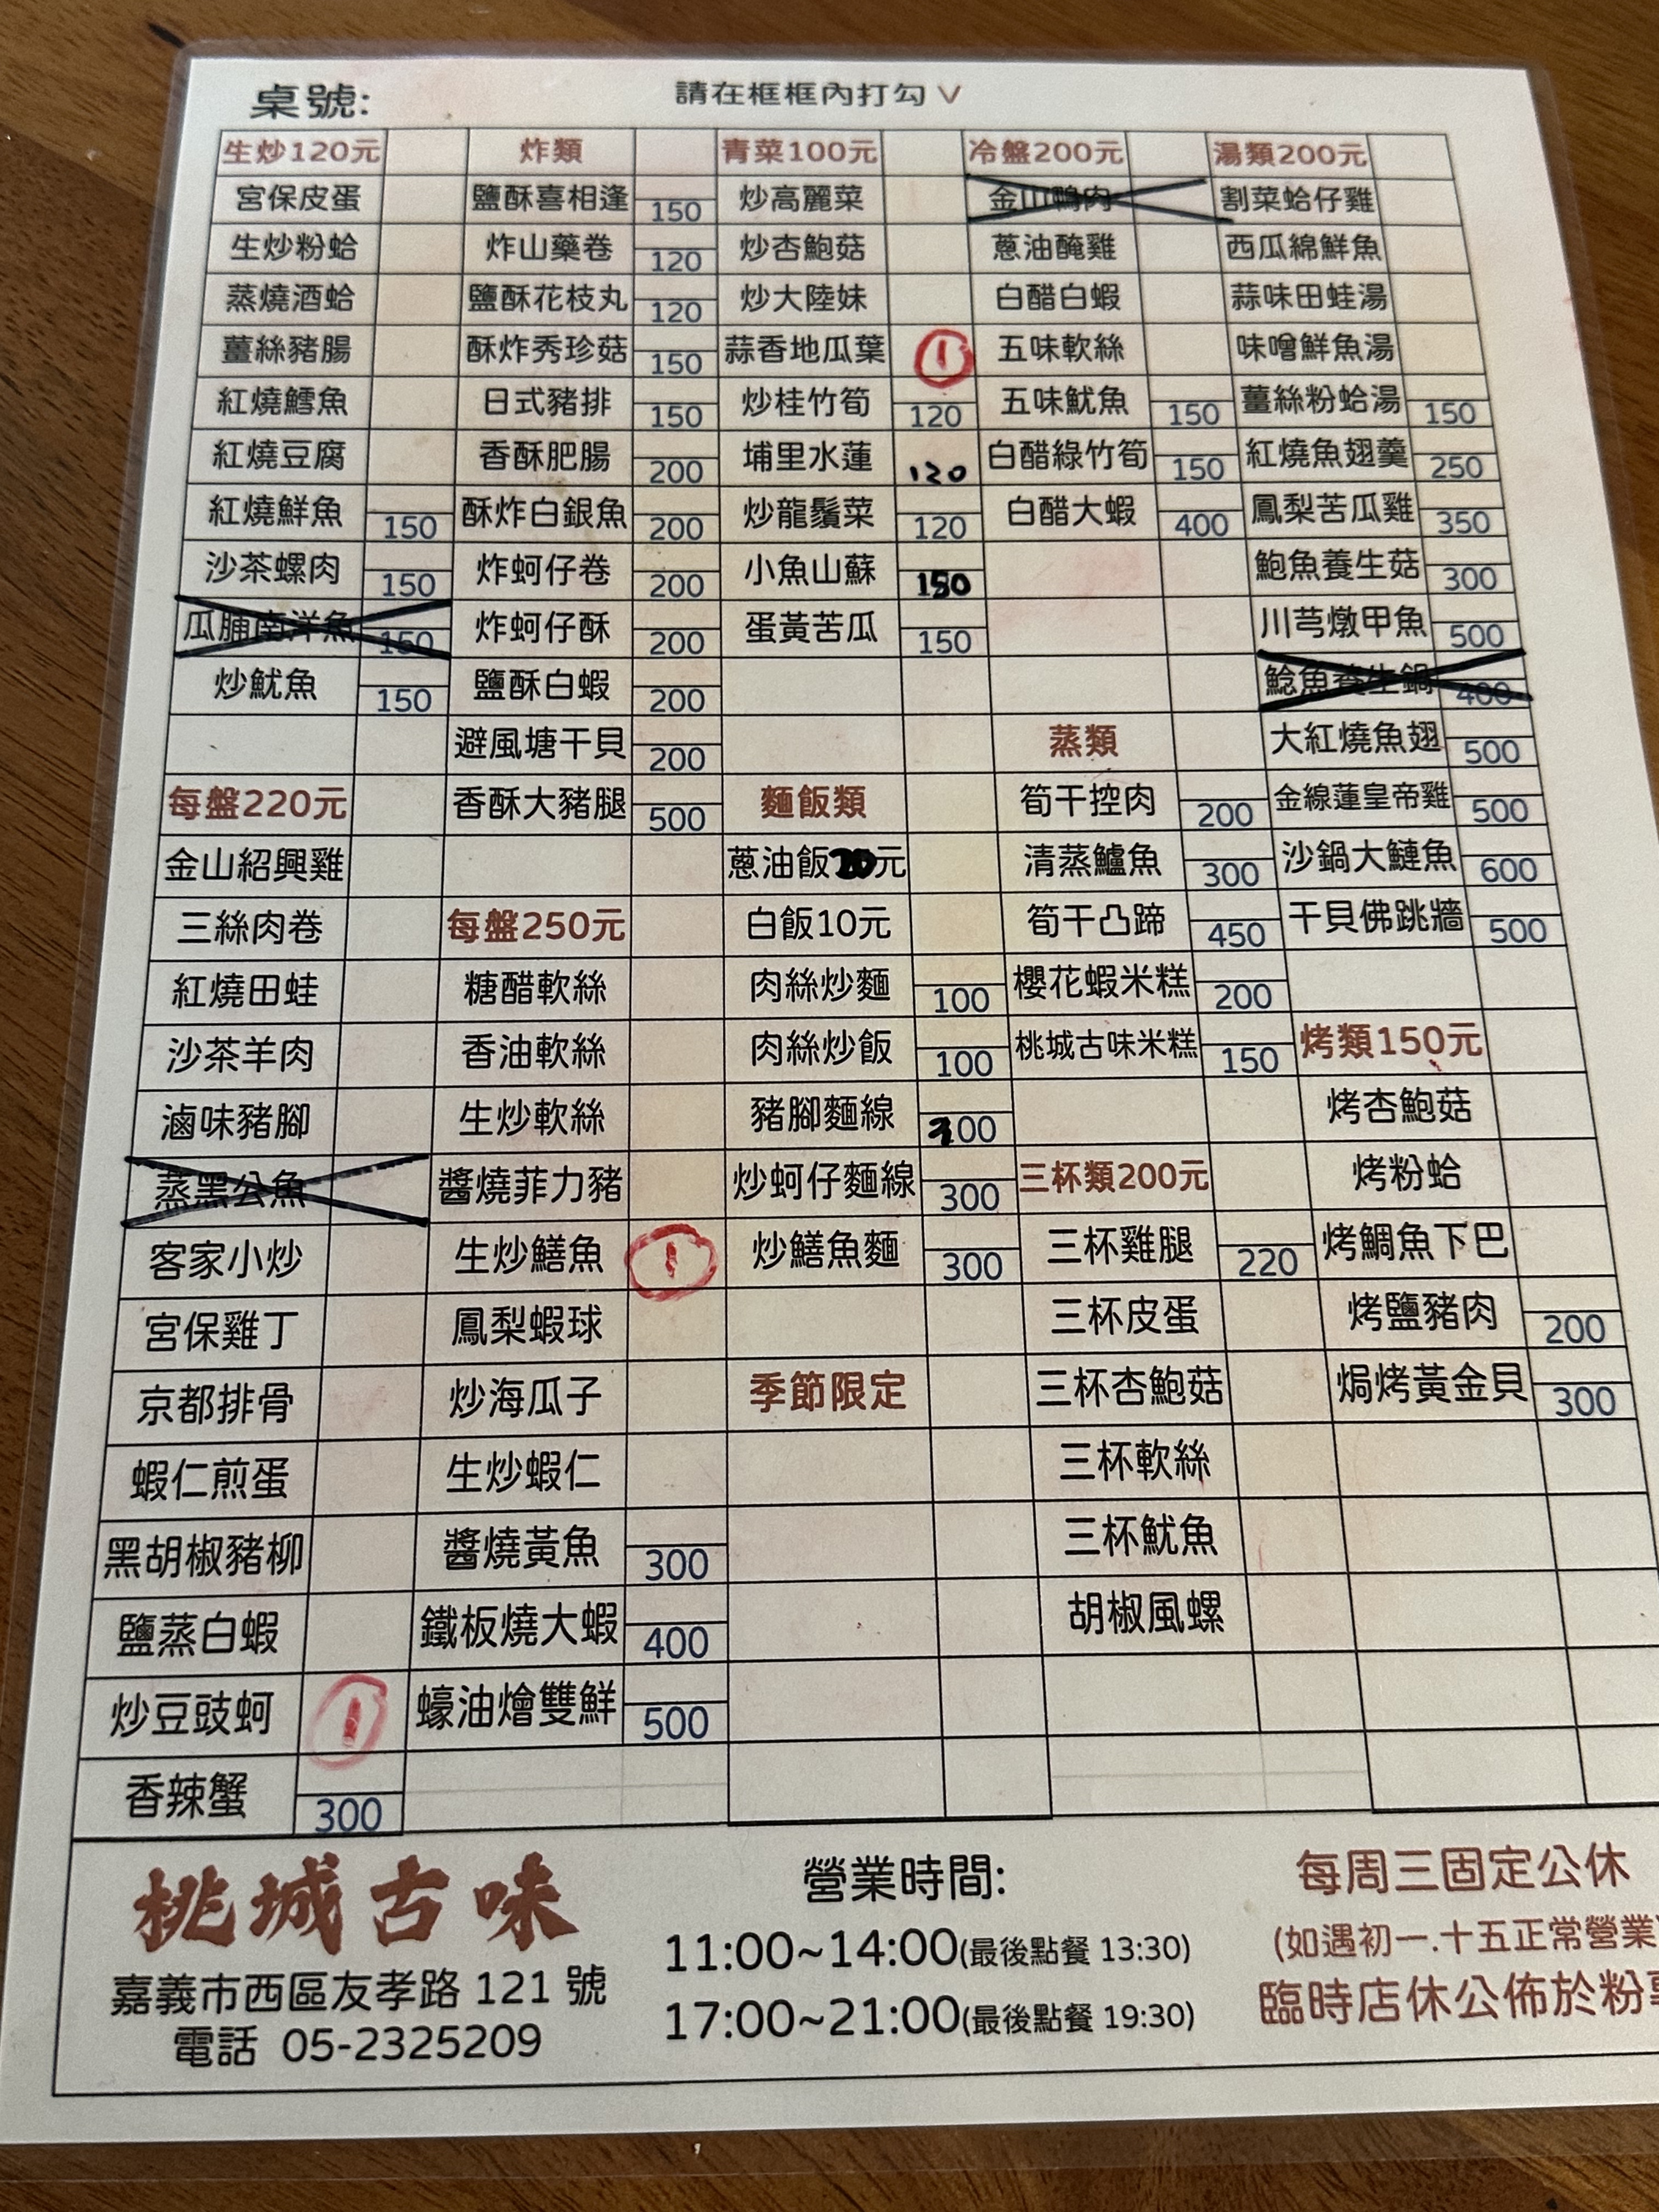 桌號:
請在框框內打勾 V
生炒120元 炸類 青菜100元 冷盤200元 湯類200元
宮保皮蛋 鹽酥喜相逢 150 炒高麗菜 金山鴨肉 割菜蛤仔雞
生炒粉蛤 炸山藥卷 120 炒杏鮑菇 蔥油醃雞 西瓜綿鮮魚
蒸燒酒蛤 鹽酥花枝丸 120 炒大陸妹 白醋白蝦 蒜味田蛙湯
薑絲豬腸 酥炸秀珍菇 150 蒜香地瓜葉 1 五味軟絲 味噌鮮魚湯
紅燒鱈魚 日式豬排 150 炒桂竹筍 120 五味魷魚 150 薑絲粉蛤湯 150
紅燒豆腐 香酥肥腸 200 埔里水蓮 120 白醋綠竹筍 150 紅燒魚翅羹 250
紅燒鮮魚 150 酥炸白銀魚 200 炒龍鬚菜 120 白醋大蝦 400 鳳梨苦瓜雞 350
沙茶螺肉 150 炸蚵仔卷 200 小魚山蘇 150 鮑魚養生菇 300
瓜脯南洋魚 150 炸蚵仔酥 200 蛋黃苦瓜 150 川芎燉甲魚 500
炒魷魚 150 鹽酥白蝦 200 鯰魚養生鍋 400
避風塘干貝 200 蒸類 大紅燒魚翅 500
每盤220元 香酥大豬腿 500 麵飯類 筍干控肉 200 金線蓮皇帝雞 500
金山紹興雞 蔥油飯20元 清蒸鱸魚 300 沙鍋大鰱魚 600
三絲肉卷 每盤250元 白飯10元 筍干凸蹄 450 干貝佛跳牆 500
紅燒田蛙 糖醋軟絲 肉絲炒麵 100 櫻花蝦米糕 200
沙茶羊肉 香油軟絲 肉絲炒飯 100 桃城古味米糕 150 烤類150元
滷味豬腳 生炒軟絲 豬腳麵線 00 烤杏鮑菇
蒸黑公魚 醬燒菲力豬 炒蚵仔麵線 300 三杯類200元 烤粉蛤
客家小炒 生炒鱔魚 1 炒鱔魚麵 300 三杯雞腿 220 烤鯛魚下巴
宮保雞丁 鳳梨蝦球 三杯皮蛋 烤鹽豬肉 200
京都排骨 炒海瓜子 季節限定 三杯杏鮑菇 焗烤黃金貝 300
蝦仁煎蛋 生炒蝦仁 三杯軟絲
黑胡椒豬柳 醬燒黃魚 300 三杯魷魚
鹽蒸白蝦 鐵板燒大蝦 400 胡椒風螺
炒豆豉蚵 1 蠔油燴雙鮮 500
香辣蟹 300
桃城古味
嘉義市西區友孝路 121 號
電話 05-2325209
營業時間:
11:00~14:00(最後點餐 13:30)
17:00~21:00(最後點餐 19:30)
每周三固定公休
(如遇初一.十五正常營業
臨時店休公佈於粉